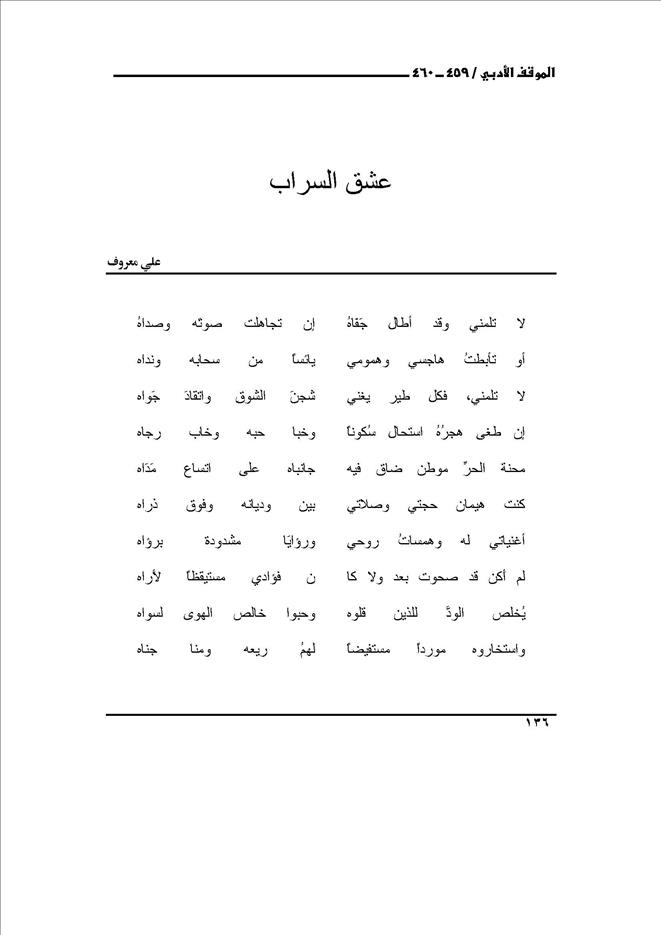 الموقف الأدبي / ٤٥٩ ــ ٤٦٠
عشق السراب
علي معروف
لا تلمني وقد أطال جَفاهُ إن تجاهلت صوتَه وصداهُ
أو تأبطتُ هاجسي وهمومي يائساً من سحابه ونداه
لا تلمني، فكل طير يغني شجنَ الشوق واتقادَ جَواه
إن طغى هجرُهُ استحال سُكوناً وخبا حبه وخاب رجاه
محنة الحرِّ موطن ضاق فيه جانباه على اتساع مَدَاه
كنت هيمان حجتي وصلاتي بين وديانه وفوق ذراه
أغنياتي له وهمساتُ روحي ورؤايَا مشدودة برؤاه
لم أكن قد صحوت بعد ولا كا ن فؤادي مستيقظاً لأراه
يُخلص الودَّ للذين قلوه وحبوا خالص الهوى لسواه
واستخاروه مورداً مستفيضاً لهمُ ريعه ومنا جناه
١٣٦